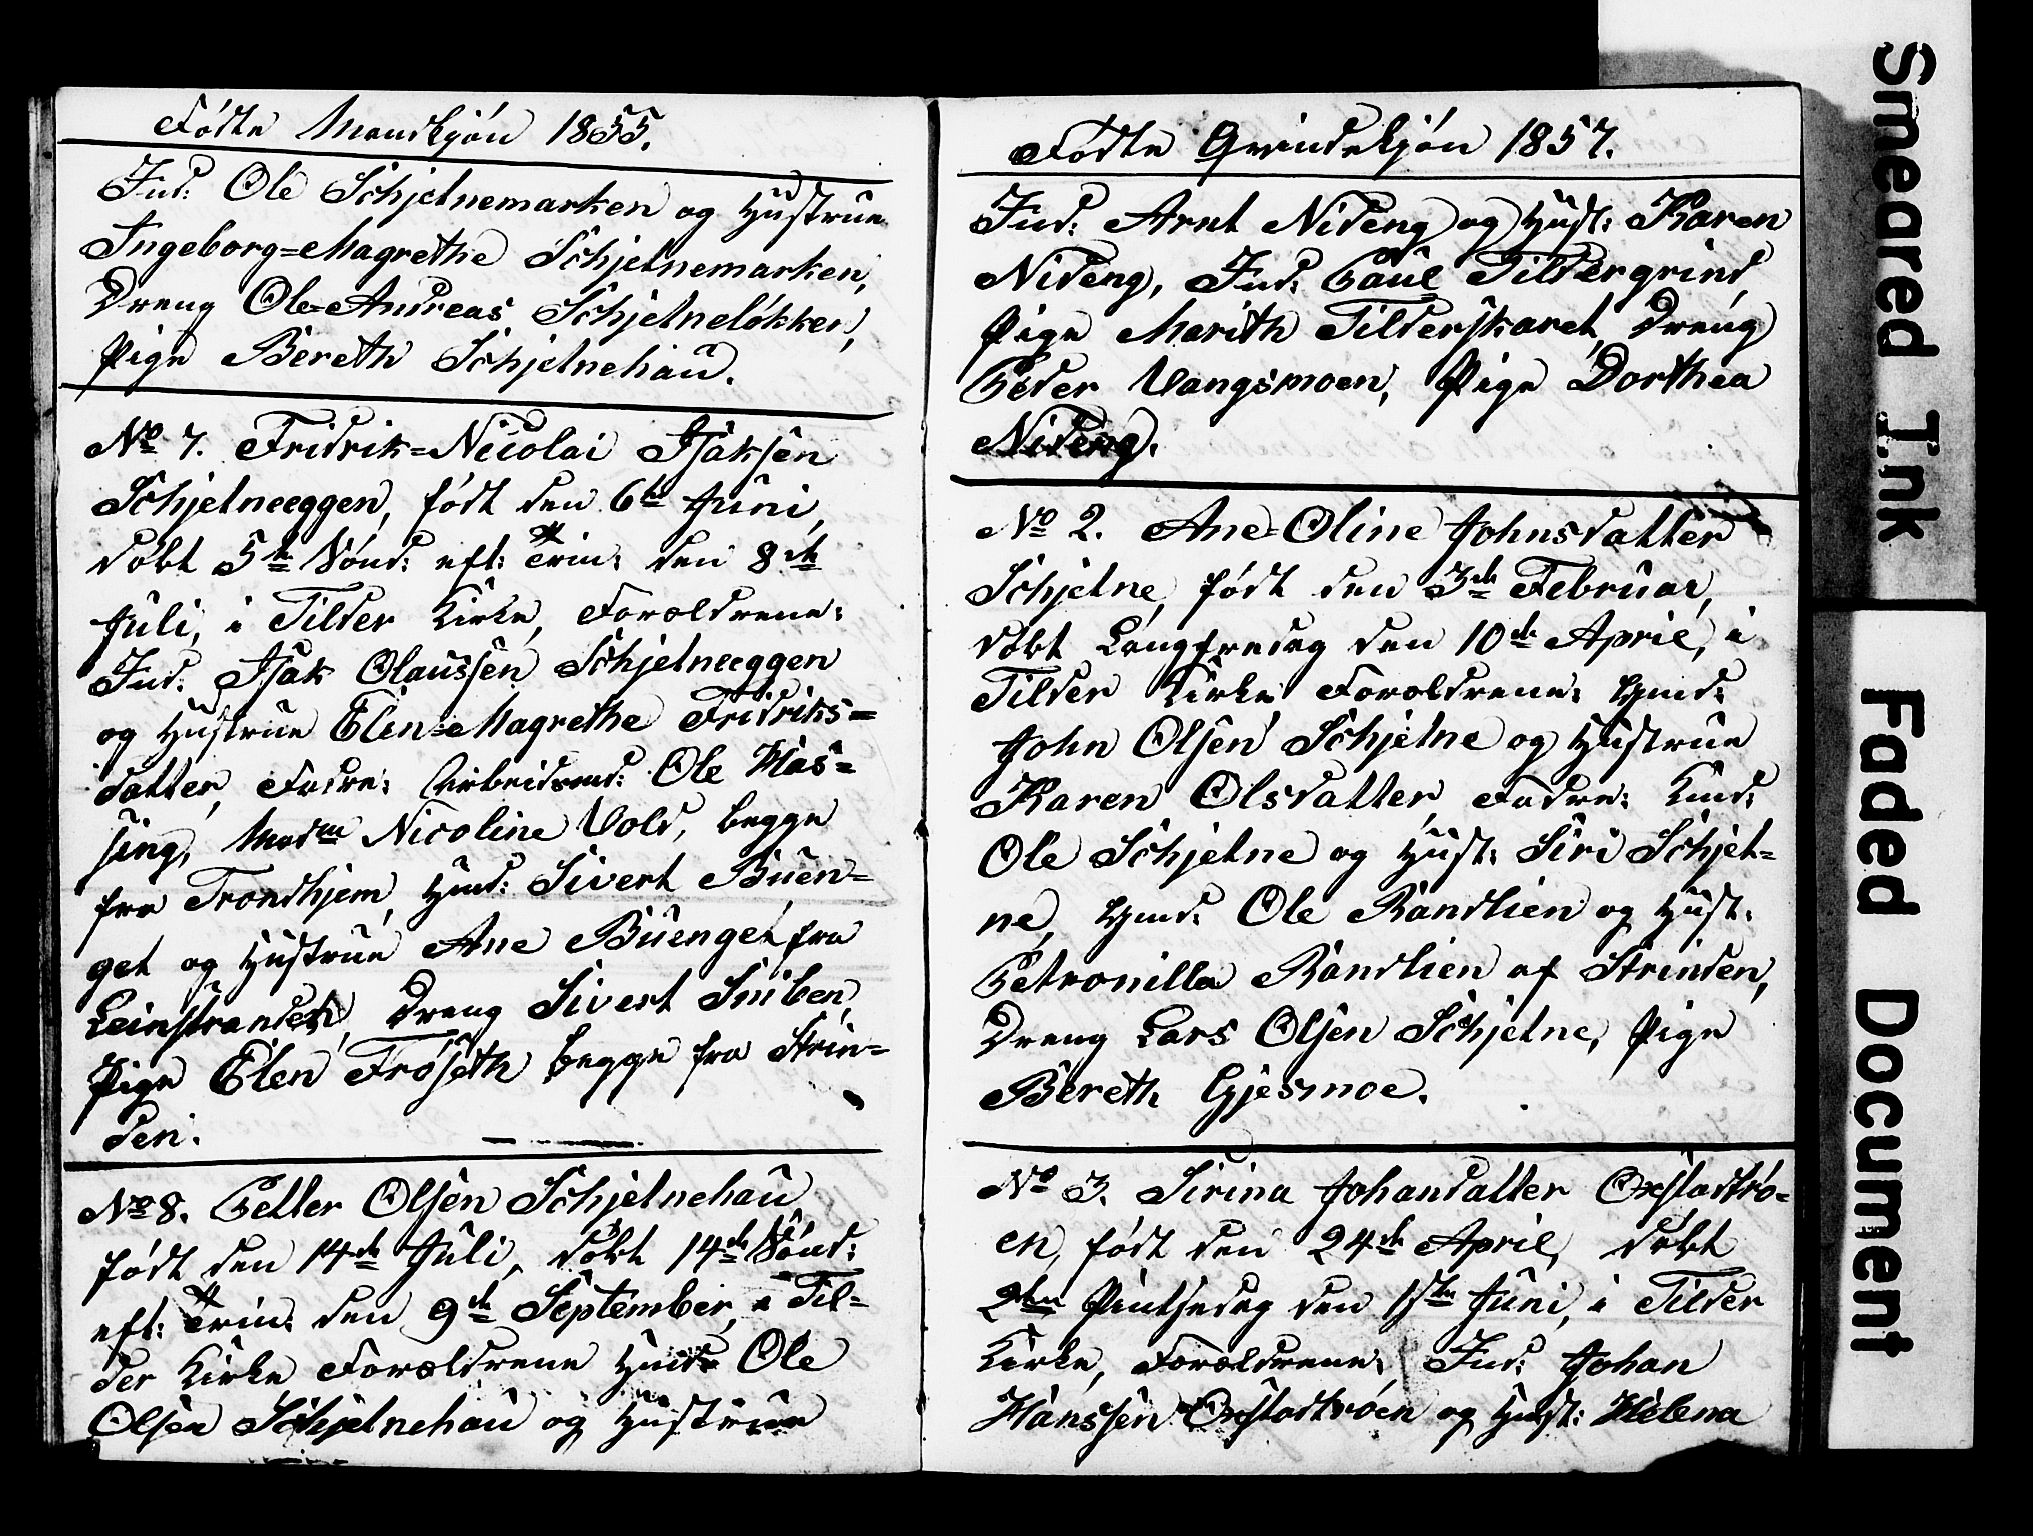 Födte Mandkjön 1855.
Ind: Ole Schjelnemarken og Hustrue
Ingeborg=Magrethe Schjelnemarken,
Dreng Ole=Andreas Schjelneløkken,
Pige Bereth Schjelnehau.
No 7. Fridrik=Nicolai Isaksen
Schjelneeggen, født den 6te Juni,
døbt 5te Sönd: eft: Trin: den 8de
Juli, i Tilder Kirke, Forældrene:
Ind: Isak Olaussen Schjelneeggen
og Hustrue Elen=Magrethe Fridriks=
datter, Fadre: Arbeidsmd: Ole Has=
sing, Madm Nicoline Vold, begge
fra Trondhjem, Gmd: Sivert Buen=
get og Hustrue Ane Buenget fra
Leinstranden, Dreng Sivert
Pige Elen Frøseth begge fra Strin=
den.
No 8. Petter Olsen Schjelnehau
født den 14de Juli, døbt 14de Sönd:
eft: Trin: den 9de September, i Til=
der Kirke Forældrene Ole
Olsen Schjelnehau og Hustrue
Födte Qvindekjön 1857.
Ind: Arnt Nideng og Hust: Karen
Nideng, Ind: Paul Tildergrind,
Pige Marith Tilderskaret, Dreng
Peder Vangsmoen, Pige Dorthea
Nideng.
No 2. Ane=Oline Johnsdatter
Schjelne, født den 3de Februar,
døbt Langfredag den 10de April, i
Tilder Kirke Forældrene: Gmd:
John Olsen Schjelne og Hustrue
Karen Olsdatter, Fadre: Kmd:
Ole Schjelne og Hust: Siri Schjel=
ne, Gmd: Ole Randlien og Hust:
Petronilla Randlien af Strinden,
Dreng Lars Olsen Schjelne, Pige
Bereth Gjesmoe.
No 3. Sirina Johansdatter Oxstadtrø=
en, født den 24de April, døbt
2den Pintsedag den 1ste Juni, i Tilder
Kirke, Forældrene: Ind: Johan
Hanssen Oxstadtrøen og Hust: Helena
Smeared Ink
Faded Document